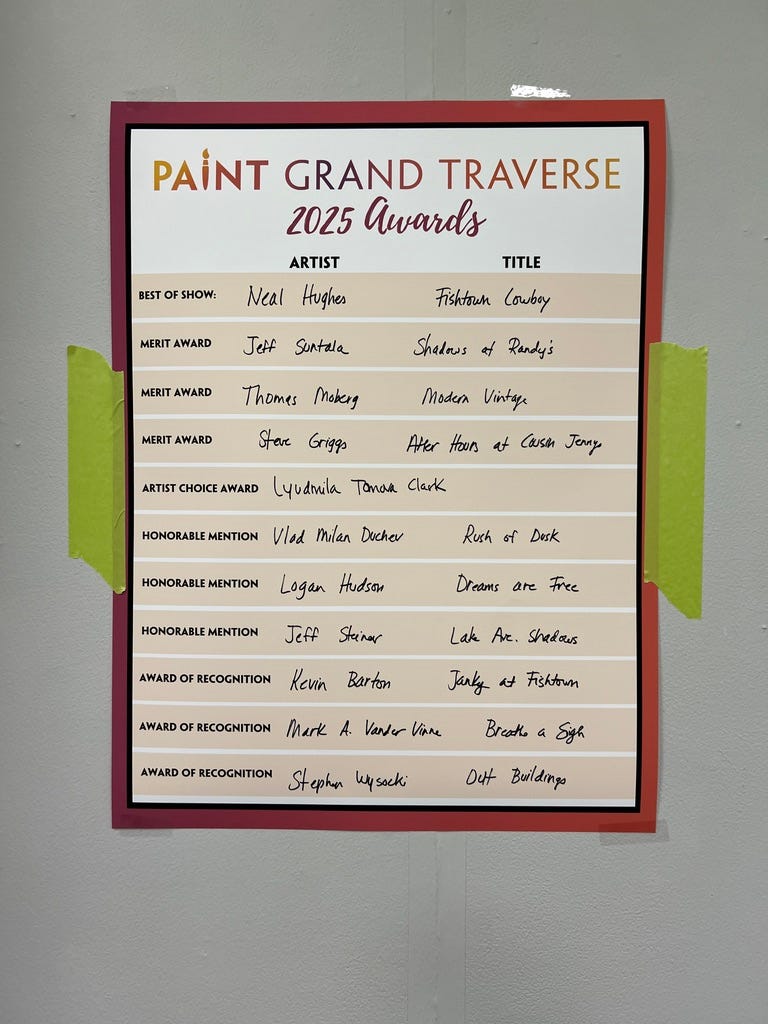 PAINT GRAND TRAVERSE
2025 Awards
ARTIST TITLE
BEST OF SHOW: Neal Hughes Fishtown Cowboy
MERIT AWARD Jeff Suntala Shadows at Randy's
MERIT AWARD Thomas Moberg Modern Vintage
MERIT AWARD Steve Griggs After Hours at Cousin Jennys
ARTIST CHOICE AWARD Lyudmila Tomova Clark
HONORABLE MENTION Vlad Milan Duchev Rush of Dusk
HONORABLE MENTION Logan Hudson Dreams are Free
HONORABLE MENTION Jeff Steiner Lake Ave. Shadows
AWARD OF RECOGNITION Kevin Barton Janky at Fishtown
AWARD OF RECOGNITION Mark A. Vander Vinne Breathe a Sigh
AWARD OF RECOGNITION Stephen Wysocki Buildings